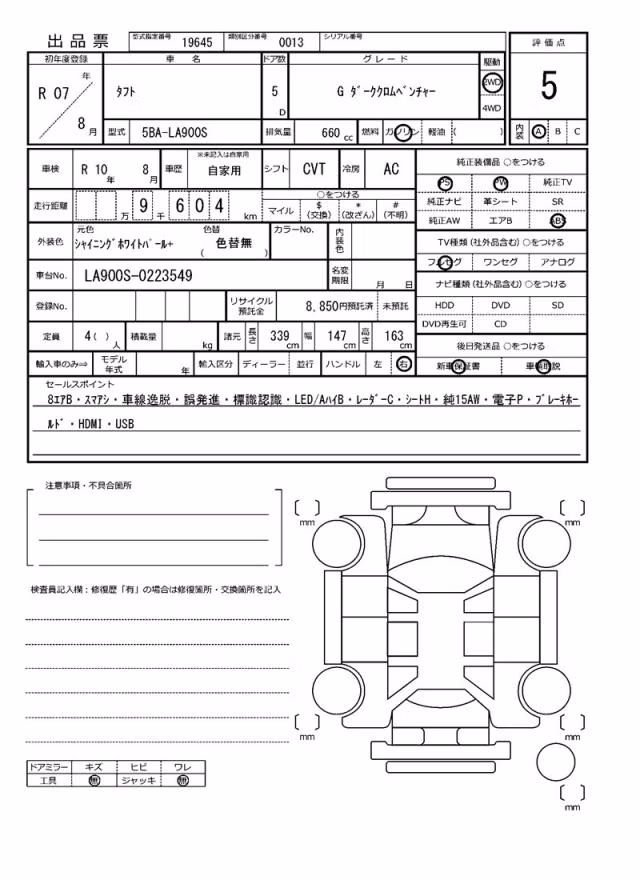 出品票 型式指定番号 19645 類別区分番号 0013 シリアル番号
初年度登録 車名 ドア数 グレード 駆動 評価点
R 07 年 8 月 タフト 5 D G ダーククロムベンチャー 2WD 4WD 5
型式 5BA-LA900S 排気量 660 cc 燃料 ガソリン 軽油 ( ) 内装 A B C
車検 R 10 年 8 月 車歴 ※未記入は自家用 自家用 シフト CVT 冷房 AC 純正装備品 ○をつける
PS PW 純正TV
走行距離 万 9 千 6 0 4 km ○をつける 純正ナビ 革シート SR
マイル $ (交換) * (改ざん) # (不明) 純正AW エアB ABS
外装色 元色 シャイニングホワイトパール+ 色替 ( 色替無 ) カラーNo. 内装色 TV種類 (社外品含む) ○をつける
フルセグ ワンセグ アナログ
車台No. LA900S-0223549 名変期限 月 日 ナビ種類 (社外品含む) ○をつける
登録No. リサイクル預託金 8,850円預託済 未預託 HDD DVD SD
DVD再生可 CD
定員 4( ) 人 積載量 kg 諸元 長さ 339 cm 幅 147 cm 高さ 163 cm 後日発送品 ○をつける
輸入車のみ⇒ モデル年式 年 輸入区分 ディーラー 並行 ハンドル 左 右 新車保証書 車輌取説
セールスポイント
8エアB・スマアシ・車線逸脱・誤発進・標識認識・LED/AハイB・レーダーC・シートH・純15AW・電子P・ブレーキホー
ルド・HDMI・USB
注意事項・不具合箇所
検査員記入欄：修復歴「有」の場合は修復箇所・交換箇所を記入
ドアミラー キズ ヒビ ワレ
工具 無 ジャッキ 無
[ ] mm
[ ] mm
[ ] mm
[ ] mm
[ ] mm